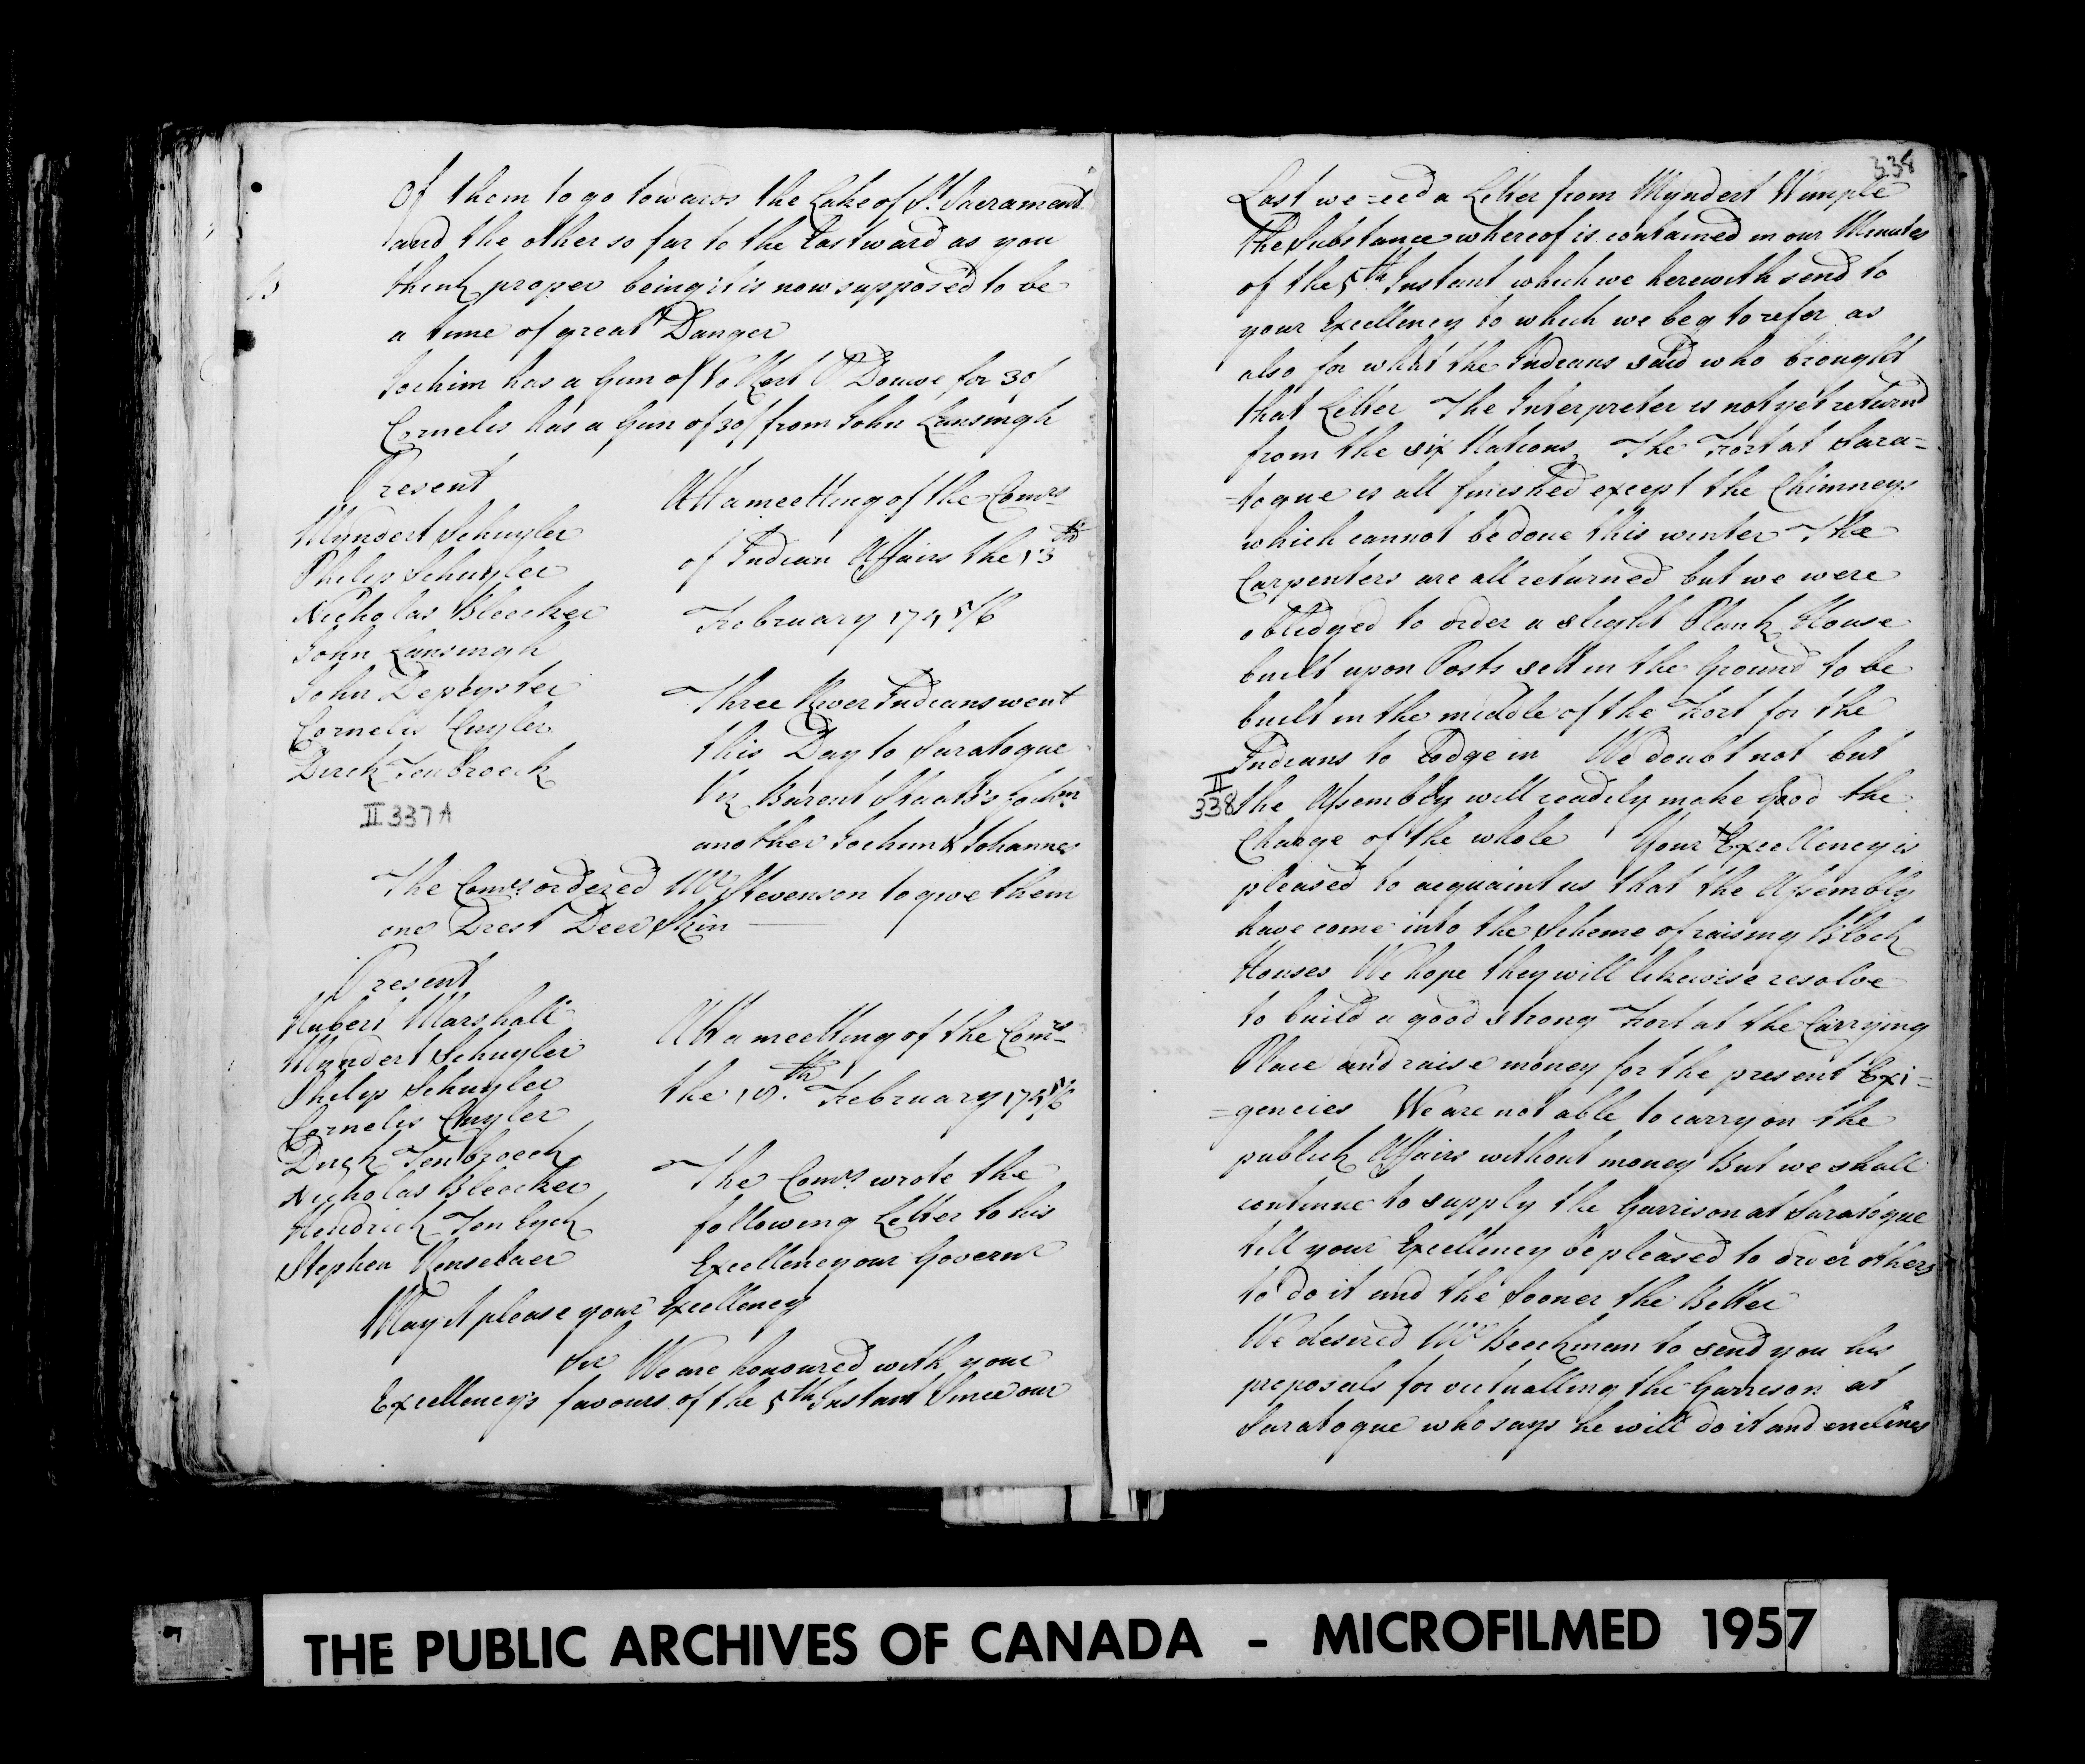 Of them to go towards the Lake of St. Sacrament
and the other so far to the Eastward as you
think proper being it is now supposed to be
a time of great Danger
Jochim has a Gun of Volkert P Douwe for 30/
Cornelis has a Gun of 30/ from John Lansingh
Present
Myndert Schuyler
Philip Schuyler
Nicholas Bleecker
John Lansingh
John Depeyster
Cornelis Cuyler
Dirck Tenbroeck
II 337A
Att a meetting of the Comrs
of Indian Affairs the 13th
February 1745/6
Three River Indians went
this Day to Saratogue
Viz Barent Staats's Jochim
another Jochim & Johannes
The Comrs ordered Mr Stevenson to give them
one Drest Deer Skin
Present
Hubert Marshall
Myndert Schuyler
Philip Schuyler
Cornelis Cuyler
Dirck Tenbroeck
Nicholas Bleecker
Hendrick Ten Eyck
Stephen Renselaer
Att a meetting of the Comrs
the February 1745/6
The Comrs wrote the
following Letter to his
Excellency our Governr
May it please your Excellency
Sir We are honoured with your
Excellency's favours of the 5th Instant Since our
338
Last we =eed a Letter from Myndert Wimple
The Substance whereof is contained in our Minutes
of the 5th Instant which we herewith send to
your Excellency to which we beg to refer as
also for what the Indians said who brought
that Letter The Interpreter is not yet returnd
from the six Nations The Fort at Sara=
=togue is all finished except the Chimneys
which cannot be done this winter The
Carpenters are all returned but we were
obledged to order a slight Plank House
built upon Posts sett in the Ground to be
built in the middle of the Fort for the
Indians to Lodge in We doubt not but
II
338
the Assembly will readily make good the
Charge of the whole Your Excellency is
pleased to acquaint us that the Assembly
have come into the Scheme of raising Block
Houses We hope they will likewise resolve
to build a good strong Fort at the Carrying
Place and raise money for the present Exi=
=gencies We are not able to carry on the
publick Affairs without money But we shall
continue to supply the Garrison at Saratogue
till your Excellency be pleased to order others
to do it and the Sooner the Better
We desired Mr Beeckman to send you his
proposals for victualling the Garrison at
Saratogue who says he will do it and enclines
THE PUBLIC ARCHIVES OF CANADA - MICROFILMED 1957